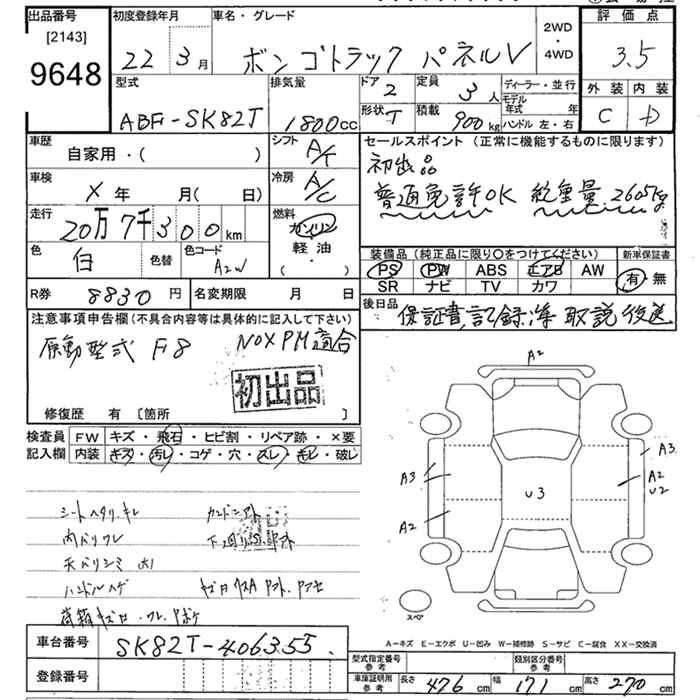 出品番号
[2143]
9648
初度登録年月
22 3月
車名・グレード
ボンゴトラック パネルV
2WD
・
4WD
評価点
3.5
外装 内装
C D
型式
ABF-SK82T
排気量
1800cc
ドア 2
形状 T
定員 3人
積載 900kg
ディーラー・並行
モデル年式 年
ハンドル 左・右
車歴
自家用・( )
シフト A/T
車検
X 年 月( 日)
冷房 A/C
走行
20万7千300km
燃料
ガソリン
軽油
( ・ )
色 白
色替
色コード A2W
R券 8830円
名変期限 月 日
セールスポイント (正常に機能するものに限ります)
初出品
普通免許OK 総重量2605kg
装備品 (純正品に限り○をつけてください)
PS PW ABS エアB AW
SR ナビ TV カワ
新車保証書
有・無
後日品
保証書,記録簿 取説後送
注意事項申告欄(不具合内容等は具体的に記入して下さい)
原動型式 F8 NOXPM適合
初出品
修復歴 有 [箇所 ]
検査員記入欄
FW キズ・飛石・ヒビ割・リペア跡・×要
内装 キズ・汚レ・コゲ・穴・スレ・キレ・破レ
シートヘタリ.キレ
内ハリワレ
天バリシミ 大
ハンドルハゲ
A2
A3
A2
U3
A3
A2
U2
スペア
A-キズ E-エクボ U-凹み W-補修跡 S-サビ C-腐食 XX-交換済
車台番号
SK82T-406355
登録番号
型式指定番号
参考
類別区分番号
参考
車庫証明用
参考
長さ 476cm 幅 171cm 高さ 270cm